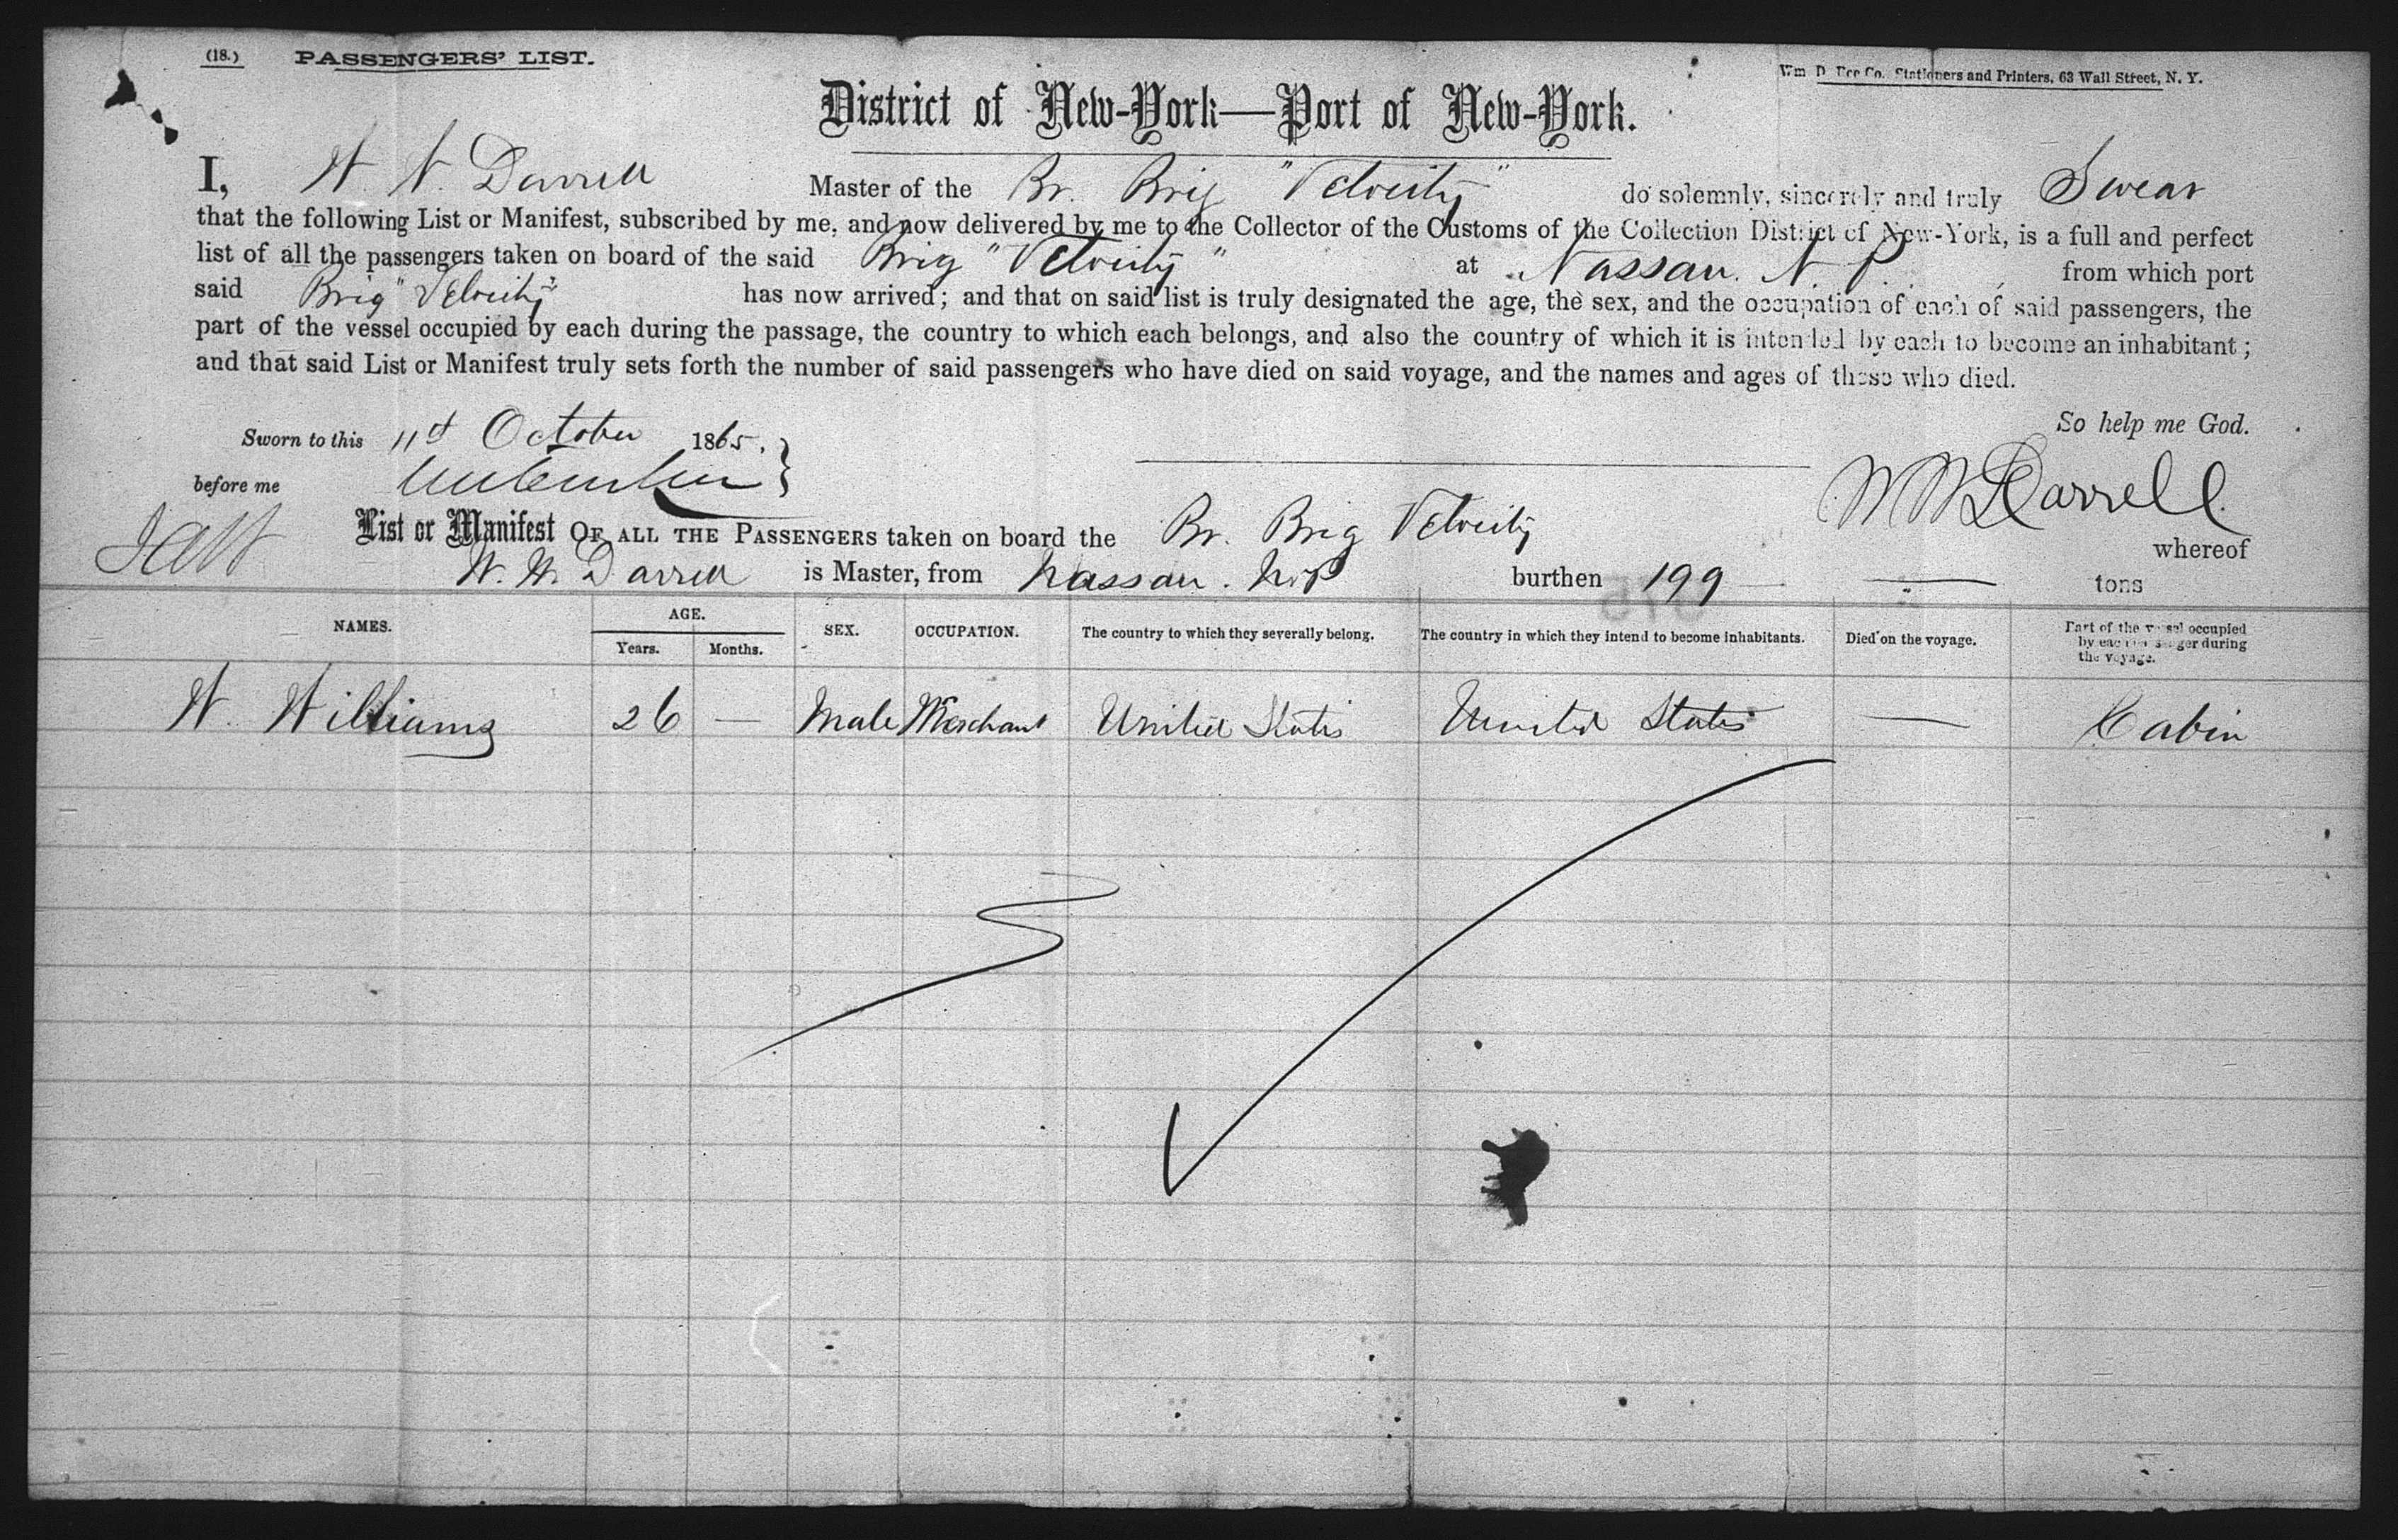 (18.) PASSENGERS' LIST.
Stationers and Printers, 63 Wall Street, N. Y.
District of New-York—Port of New-York.
I, W. W. Darrell Master of the Br. Brig "Velocity" do solemnly, sincerely and truly Swear
that the following List or Manifest, subscribed by me, and now delivered by me to the Collector of the Customs of the Collection District of New-York, is a full and perfect
list of all the passengers taken on board of the said Brig "Velocity" at Nassau. N. P. from which port
said Brig "Velocity" has now arrived; and that on said list is truly designated the age, the sex, and the occupation of each of said passengers, the
part of the vessel occupied by each during the passage, the country to which each belongs, and also the country of which it is intended by each to become an inhabitant;
and that said List or Manifest truly sets forth the number of said passengers who have died on said voyage, and the names and ages of those who died.
So help me God.
Sworn to this 11th October 1865,
before me
W W Darrell
List or Manifest OF ALL THE PASSENGERS taken on board the Br. Brig Velocity whereof
W. W. Darrell is Master, from Nassau. N. P burthen 199 — tons
NAMES. AGE. Years. Months. SEX. OCCUPATION. The country to which they severally belong. The country in which they intend to become inhabitants. Died on the voyage. Part of the vessel occupied by each passenger during the voyage.
W. Williams 26 — Male Merchant United States United States — Cabin